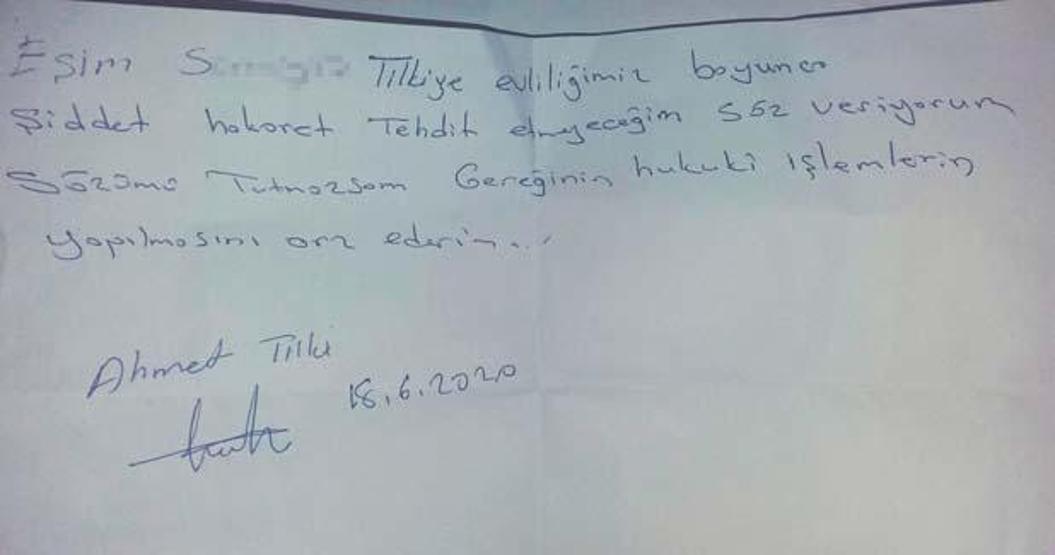 Eşim S Tilkiye evliliğimiz boyunca
Şiddet hakaret Tehdit etmeyeceğim söz veriyorum
Sözümü Tutmazsam Gereğinin hukuki işlemlerin
yapılmasını arz ederim...
Ahmet Tilki
18.6.2020